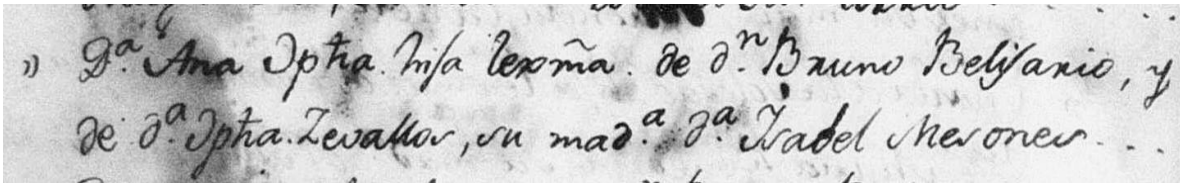 ») D.ª Ana Jpha. hija lexma. de d.n Bruno Belisario, y
de d.ª Jpha. Zevallos, su mad.ª d.ª Isabel Mesones...